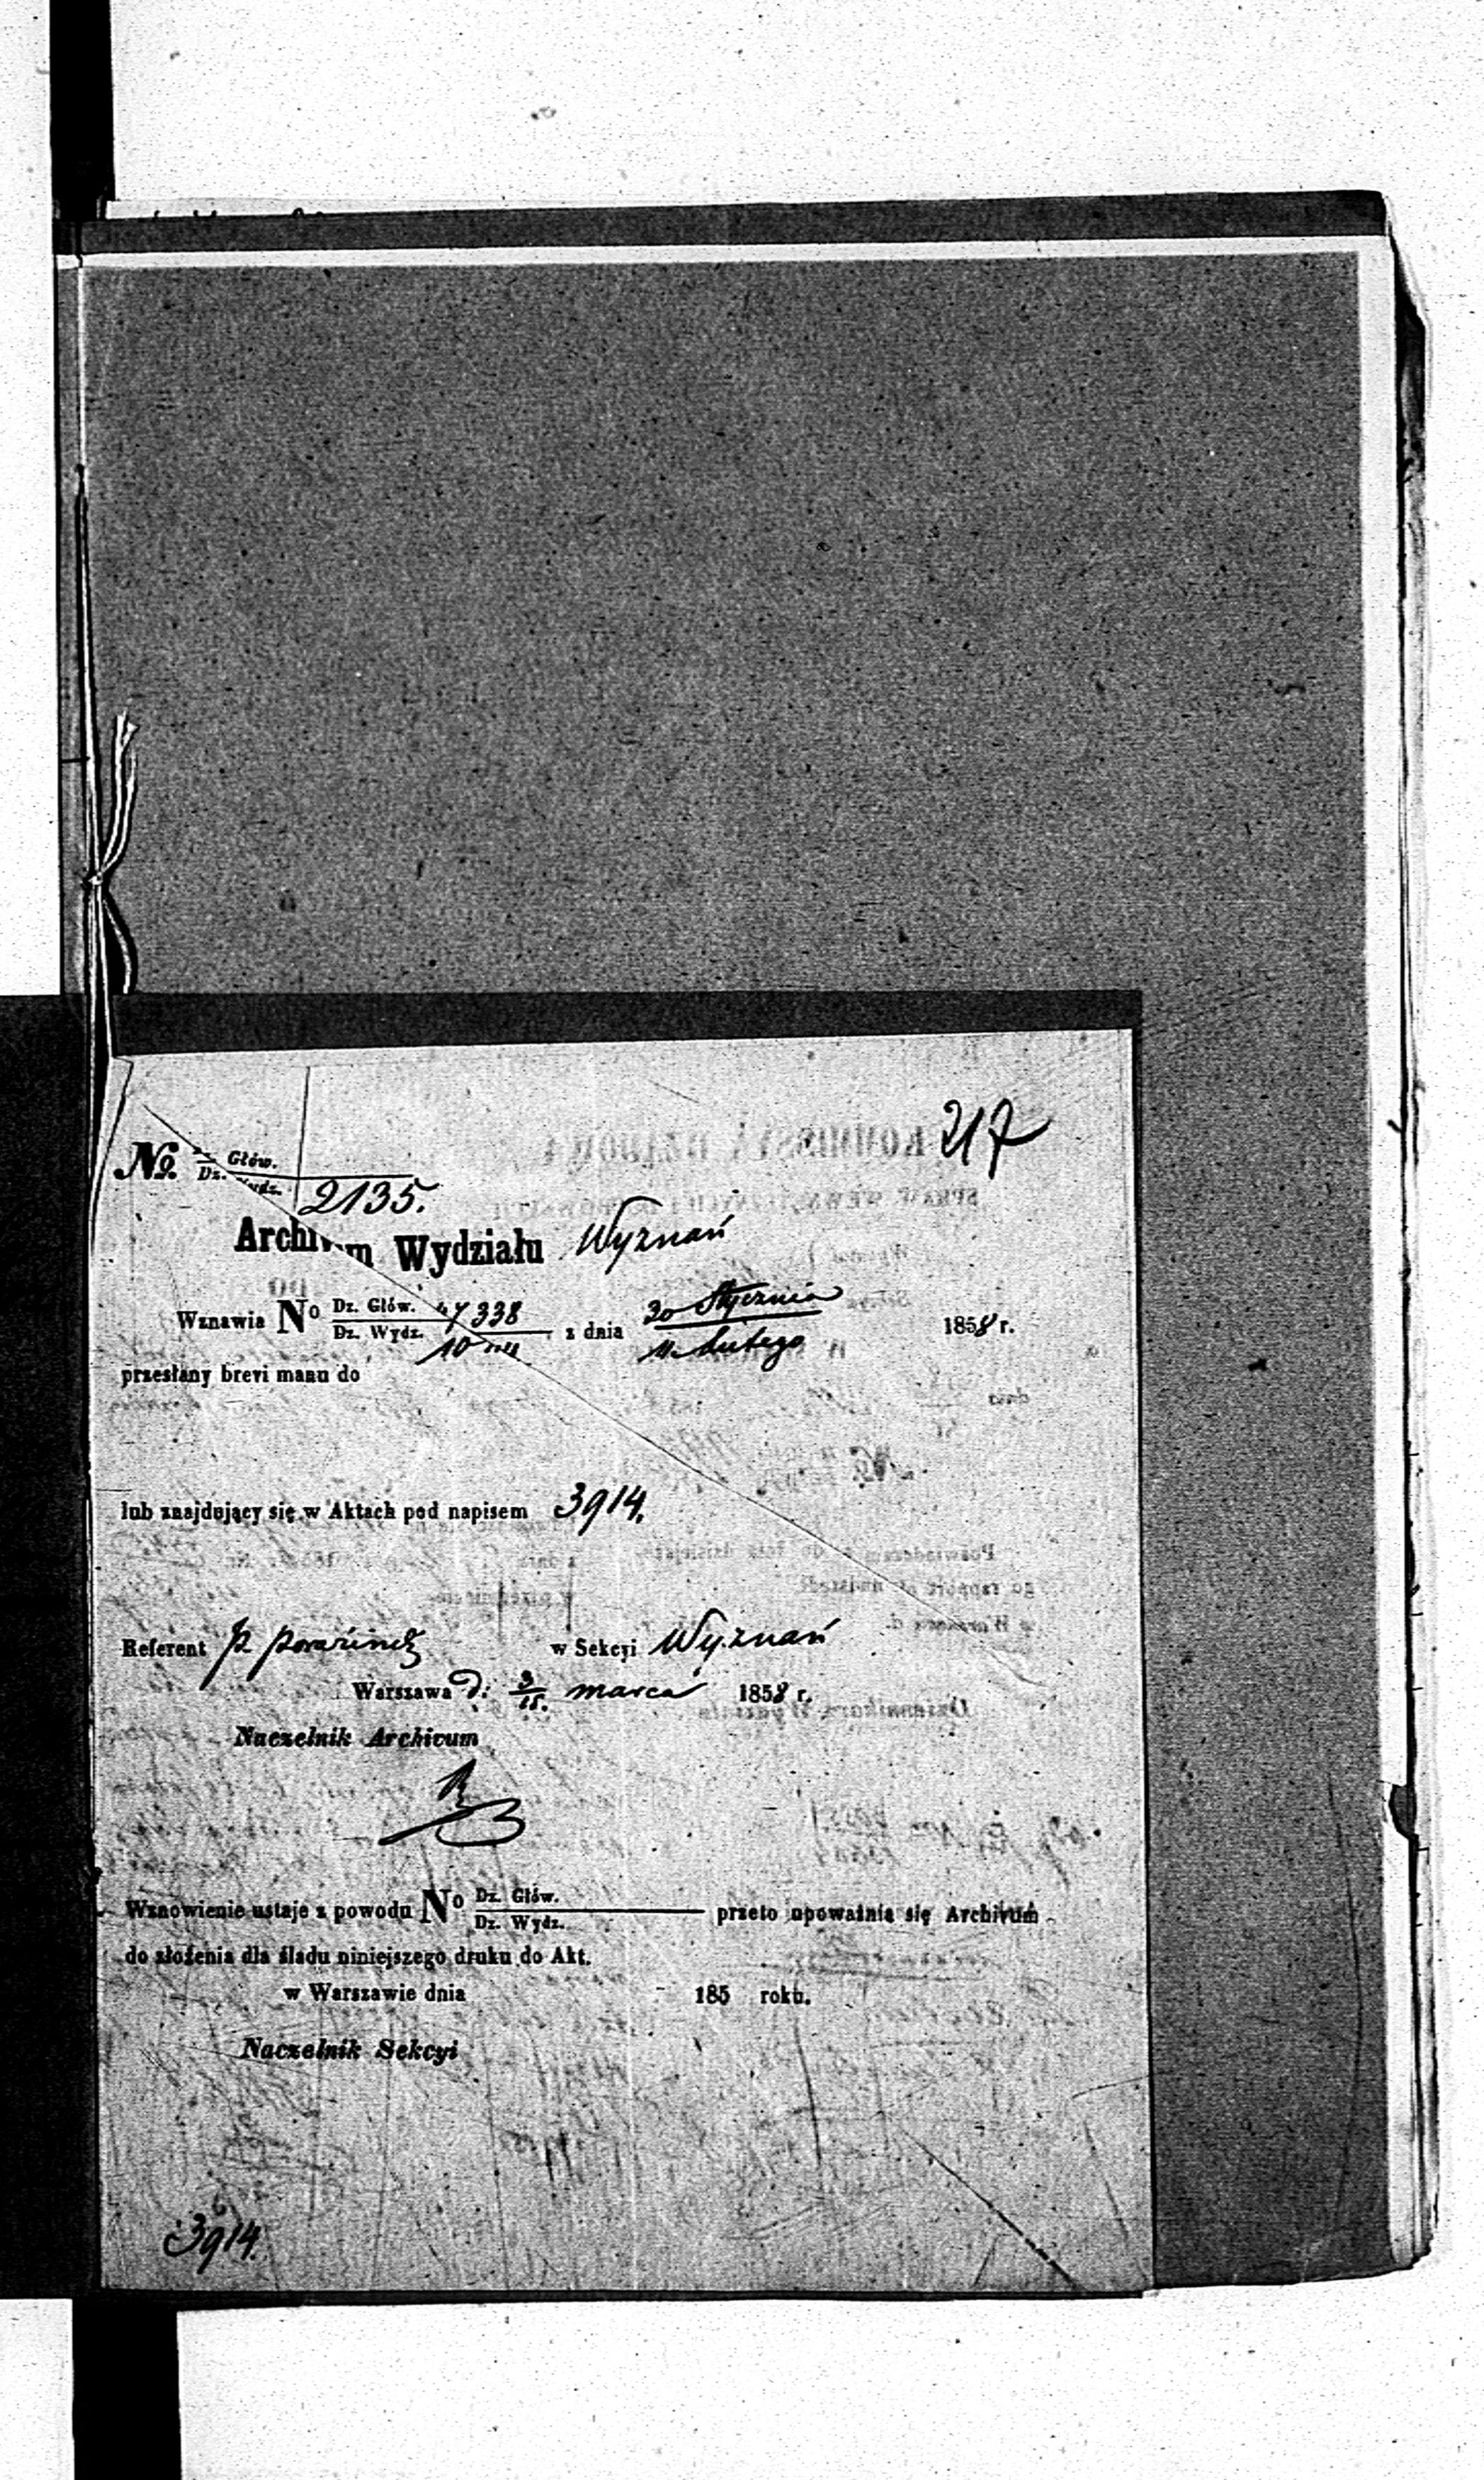 217
No. Dz. Głów.
Dz. Wydz. 2135.
Archivum Wydziału Wyznań
Wznawia No Dz. Głów. 338 z dnia 30 Stycznia 1858 r.
Dz. Wydz. 11 Lutego
przesłany brevi manu do
lub znajdujący się w Aktach pod napisem 3914.
Referent P. w Sekcyi Wyznań
Warszawa d. 3/15. marca 1858 r.
Naczelnik Archivum
Wznowienie ustaje z powodu No Dz. Głów. przeto upoważnia się Archivum
Dz. Wydz.
do złożenia dla śladu niniejszego druku do Akt.
w Warszawie dnia 185 roku.
Naczelnik Sekcyi
3914.